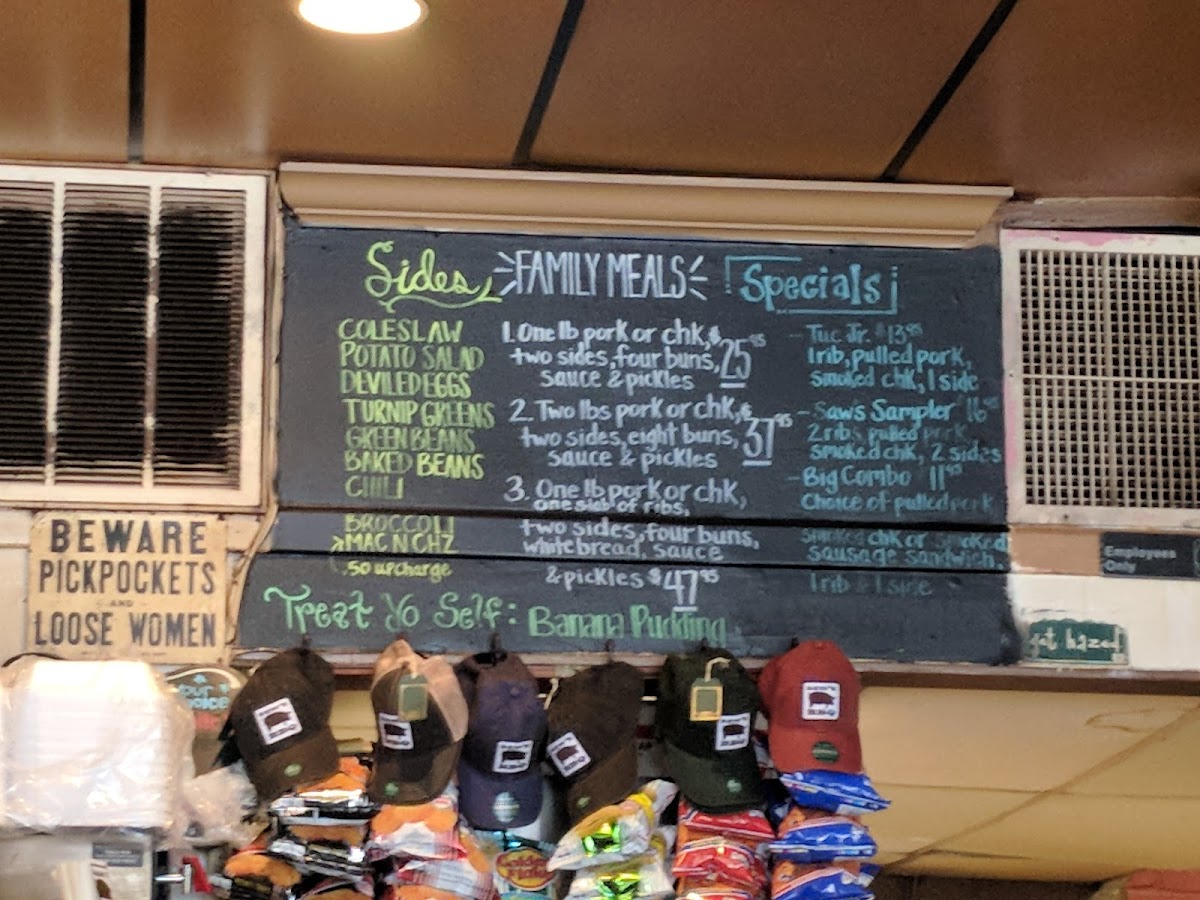 Sides
COLESLAW
POTATO SALAD
DEVILED EGGS
TURNIP GREENS
GREEN BEANS
BAKED BEANS
CHILI
BROCCOLI
MAC N CHZ
.50 upcharge
FAMILY MEALS
1. One lb pork or chk,
two sides, four buns,
sauce & pickles
$25.95
2. Two lbs pork or chk,
two sides, eight buns,
sauce & pickles
$37.95
3. One lb pork or chk,
one slab of ribs,
two sides, four buns,
white bread, sauce
& pickles $47.95
Specials
- Tuc Jr. $13.95
1 rib, pulled pork,
smoked chk, 1 side
- Saw's Sampler $16.95
2 ribs, pulled pork,
smoked chk, 2 sides
- Big Combo 11.95
Choice of pulled pork
smoked chk or smoked
sausage sandwich,
1 rib & 1 side
Treat Yo Self: Banana Pudding
BEWARE
PICKPOCKETS
AND
LOOSE WOMEN
Employees
Only
got hazed
Golden
Flake